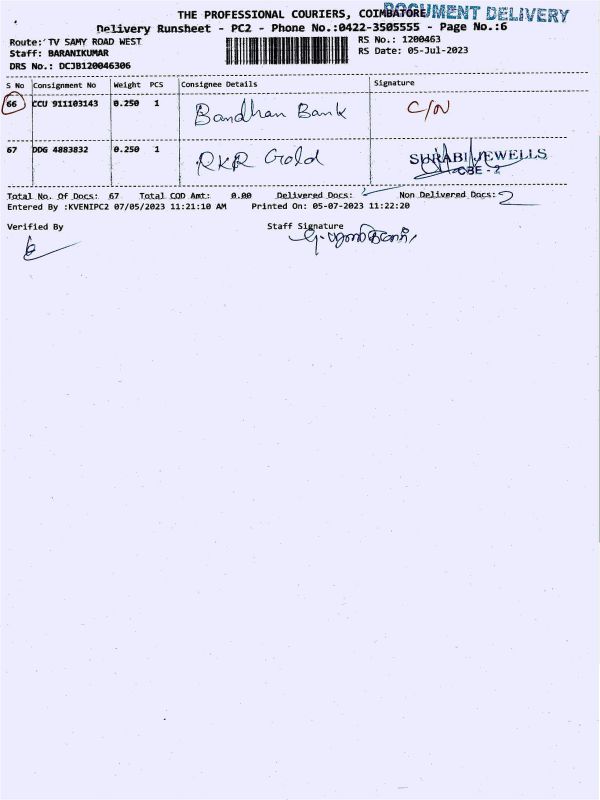 THE PROFESSIONAL COURIERS, COIMBATORE
DOCUMENT DELIVERY
Delivery Runsheet - PC2 - Phone No.:0422-3505555 - Page No.:6
Route: TV SAMY ROAD WEST
RS No.: 1200463
Staff: BARANIKUMAR
RS Date: 05-Jul-2023
DRS No.: DCJB120046306
S No Consignment No Weight PCS Consignee Details Signature
66 CCU 911103143 0.250 1 Bandhan Bank C/N
67 DDG 4883832 0.250 1 RKR Gold SURABI JEWELLS
CBE - 2
Total No. Of Docs: 67 Total COD Amt: 0.00 Delivered Docs: Non Delivered Docs: 2
Entered By :KVENIPC2 07/05/2023 11:21:10 AM Printed On: 05-07-2023 11:22:20
Verified By Staff Signature